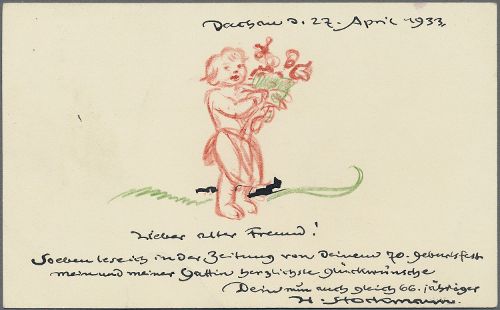 Dachau d. 27. April 1933.
Lieber alter Freund!
Soeben lese ich in der Zeitung von Deinem 70. Geburtsfest
mein und meiner Gattin herzlichste Glückwünsche
Dein nun auch gleich 66. jähriger
H. Stockmann.